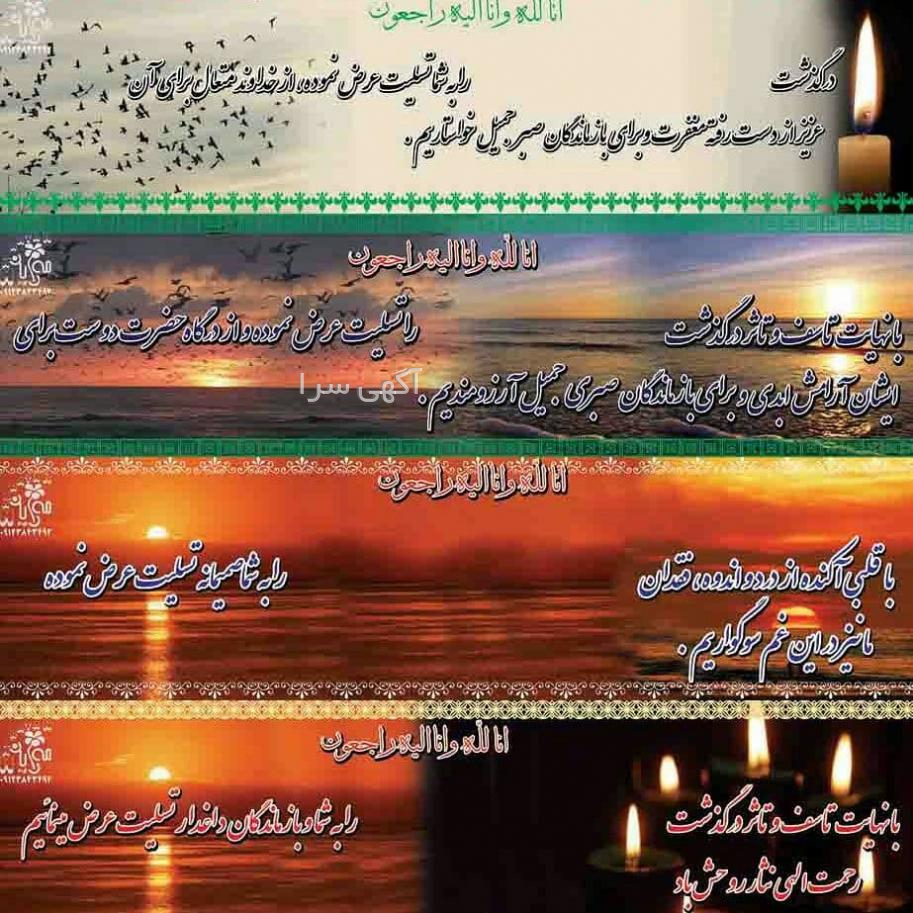 انا لله وانا الیه راجعون
درگذشت را به شما تسلیت عرض نموده، از خداوند متعال برای آن
عزیز از دست رفته مغفرت و برای بازماندگان صبر جمیل خواستاریم .
انا لله وانا الیه راجعون
با نهایت تاسف و تاثر درگذشت را تسلیت عرض نموده و از درگاه حضرت دوست برای
ایشان آرامش ابدی و برای بازماندگان صبری جمیل آرزومندیم .
آگهی سرا
انا لله وانا الیه راجعون
با قلبی آکنده از درد و اندوه، فقدان را به شما صمیمانه تسلیت عرض نموده
ما نیز در این غم سوگواریم .
انا لله وانا الیه راجعون
با نهایت تاسف و تاثر درگذشت را به شما و بازماندگان داغدار تسلیت عرض مینمائیم
رحمت الهی نثار روحش باد